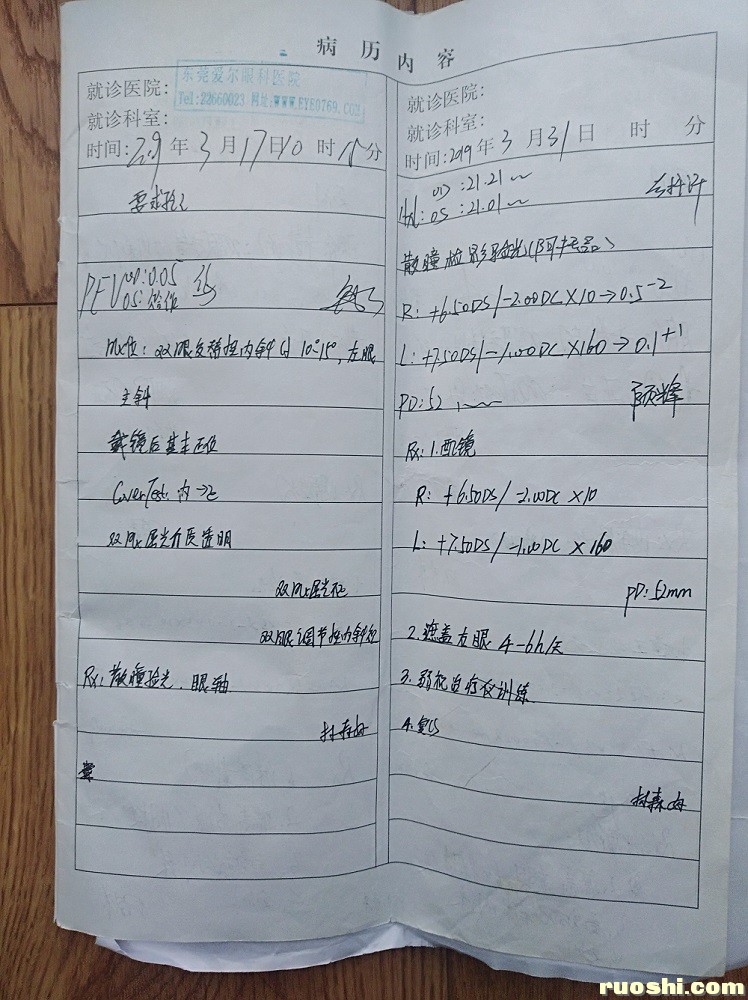 病历内容
就诊医院:
东莞爱尔眼科医院
Tel:22660023 网址:WWW.EYE0769.COM
就诊科室:
时间: 2019 年 3 月 17 日 10 时 15 分
要求
PEV OD: 0.05
OS:
眼位: 双眼交替性内斜约 10°-15°, 左眼
主斜
戴镜后基本正位
Cover Test: 内→正
双眼屈光介质透明
双眼屈光不正
双眼调节性内斜视
Rx: 散瞳验光、眼轴
就诊医院:
就诊科室:
时间: 2019 年 3 月 31 日 时 分
OD: 21.21
AL: OS: 21.01
散瞳检影验光(阿托品)
R: +6.50DS/-2.00DC×10→0.5⁻²
L: +7.50DS/-1.00DC×160→0.1⁺¹
PD: 52
Rx: 1.配镜
R: +6.50DS/-2.00DC×10
L: +7.50DS/-1.00DC×160
PD: 52mm
2.遮盖右眼 4-6h/天
3.弱视治疗仪训练
4.复诊
ruoshi.com